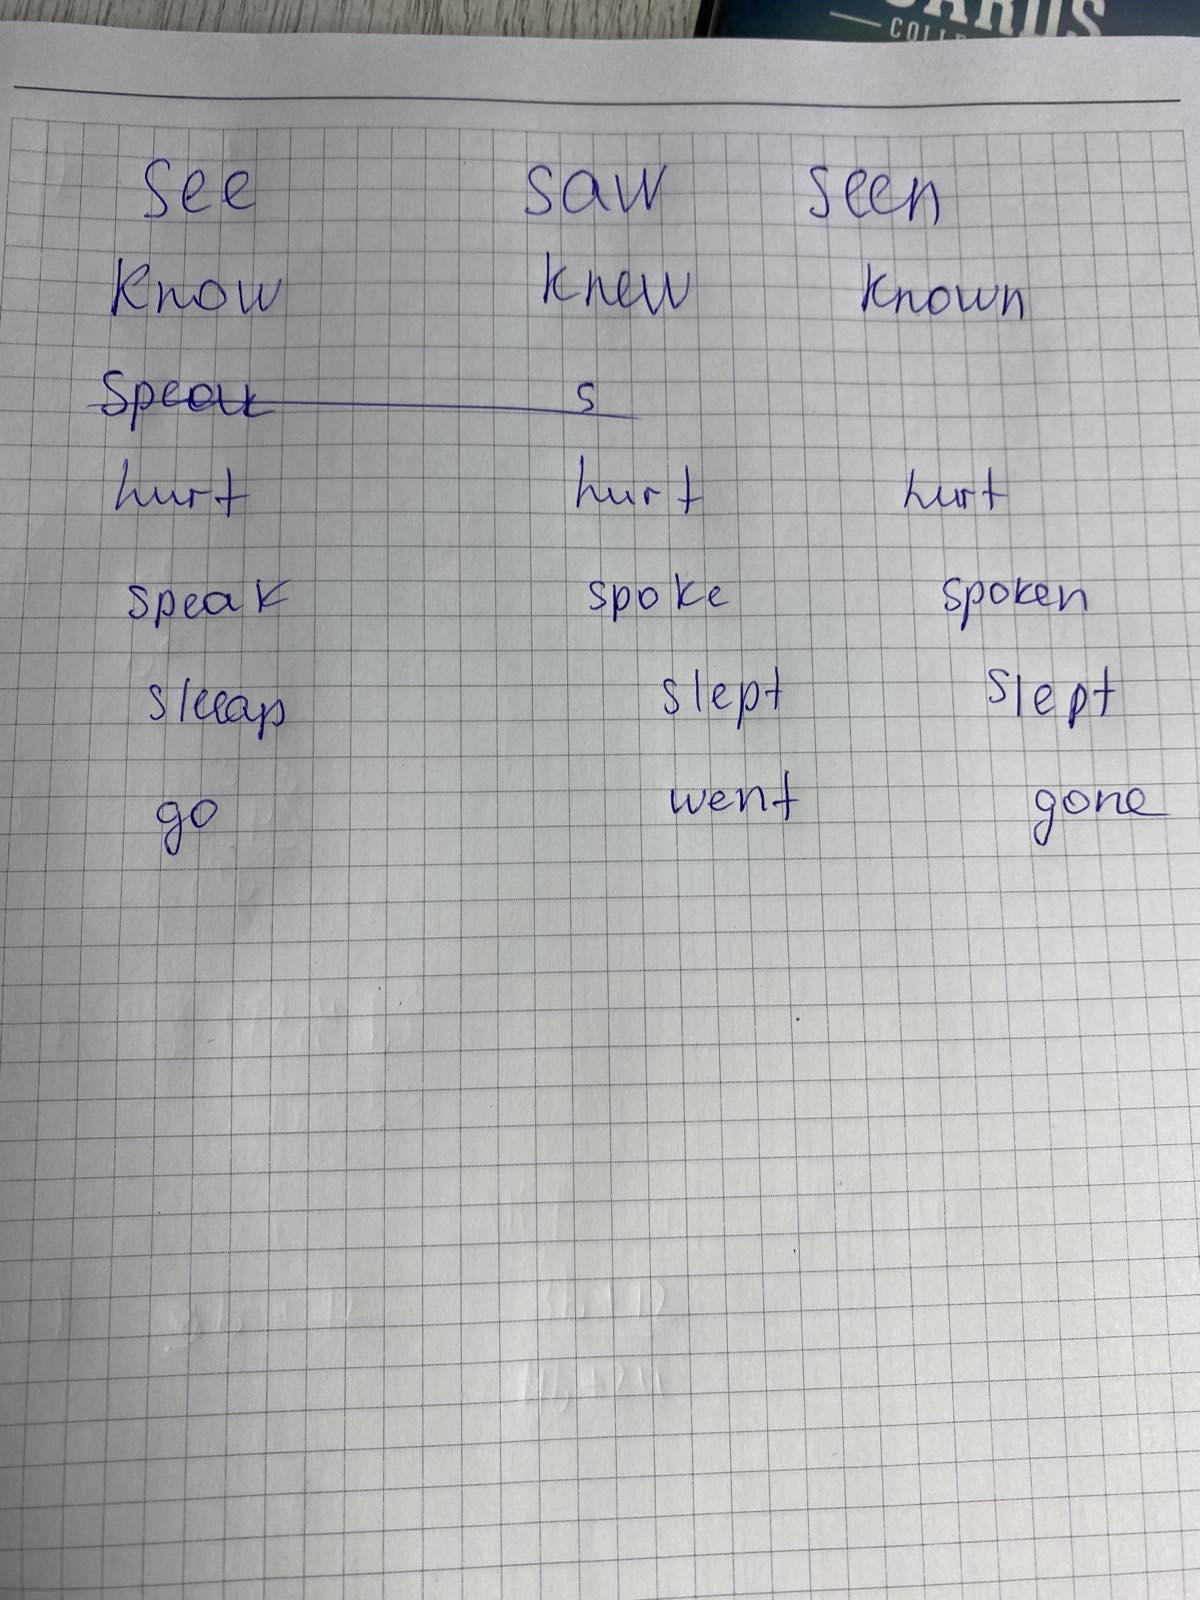 CARDS
COLLE
See saw seen
Know knew known
Speak s
hurt hurt hurt
speak spoke spoken
sleeap slept slept
go went gone